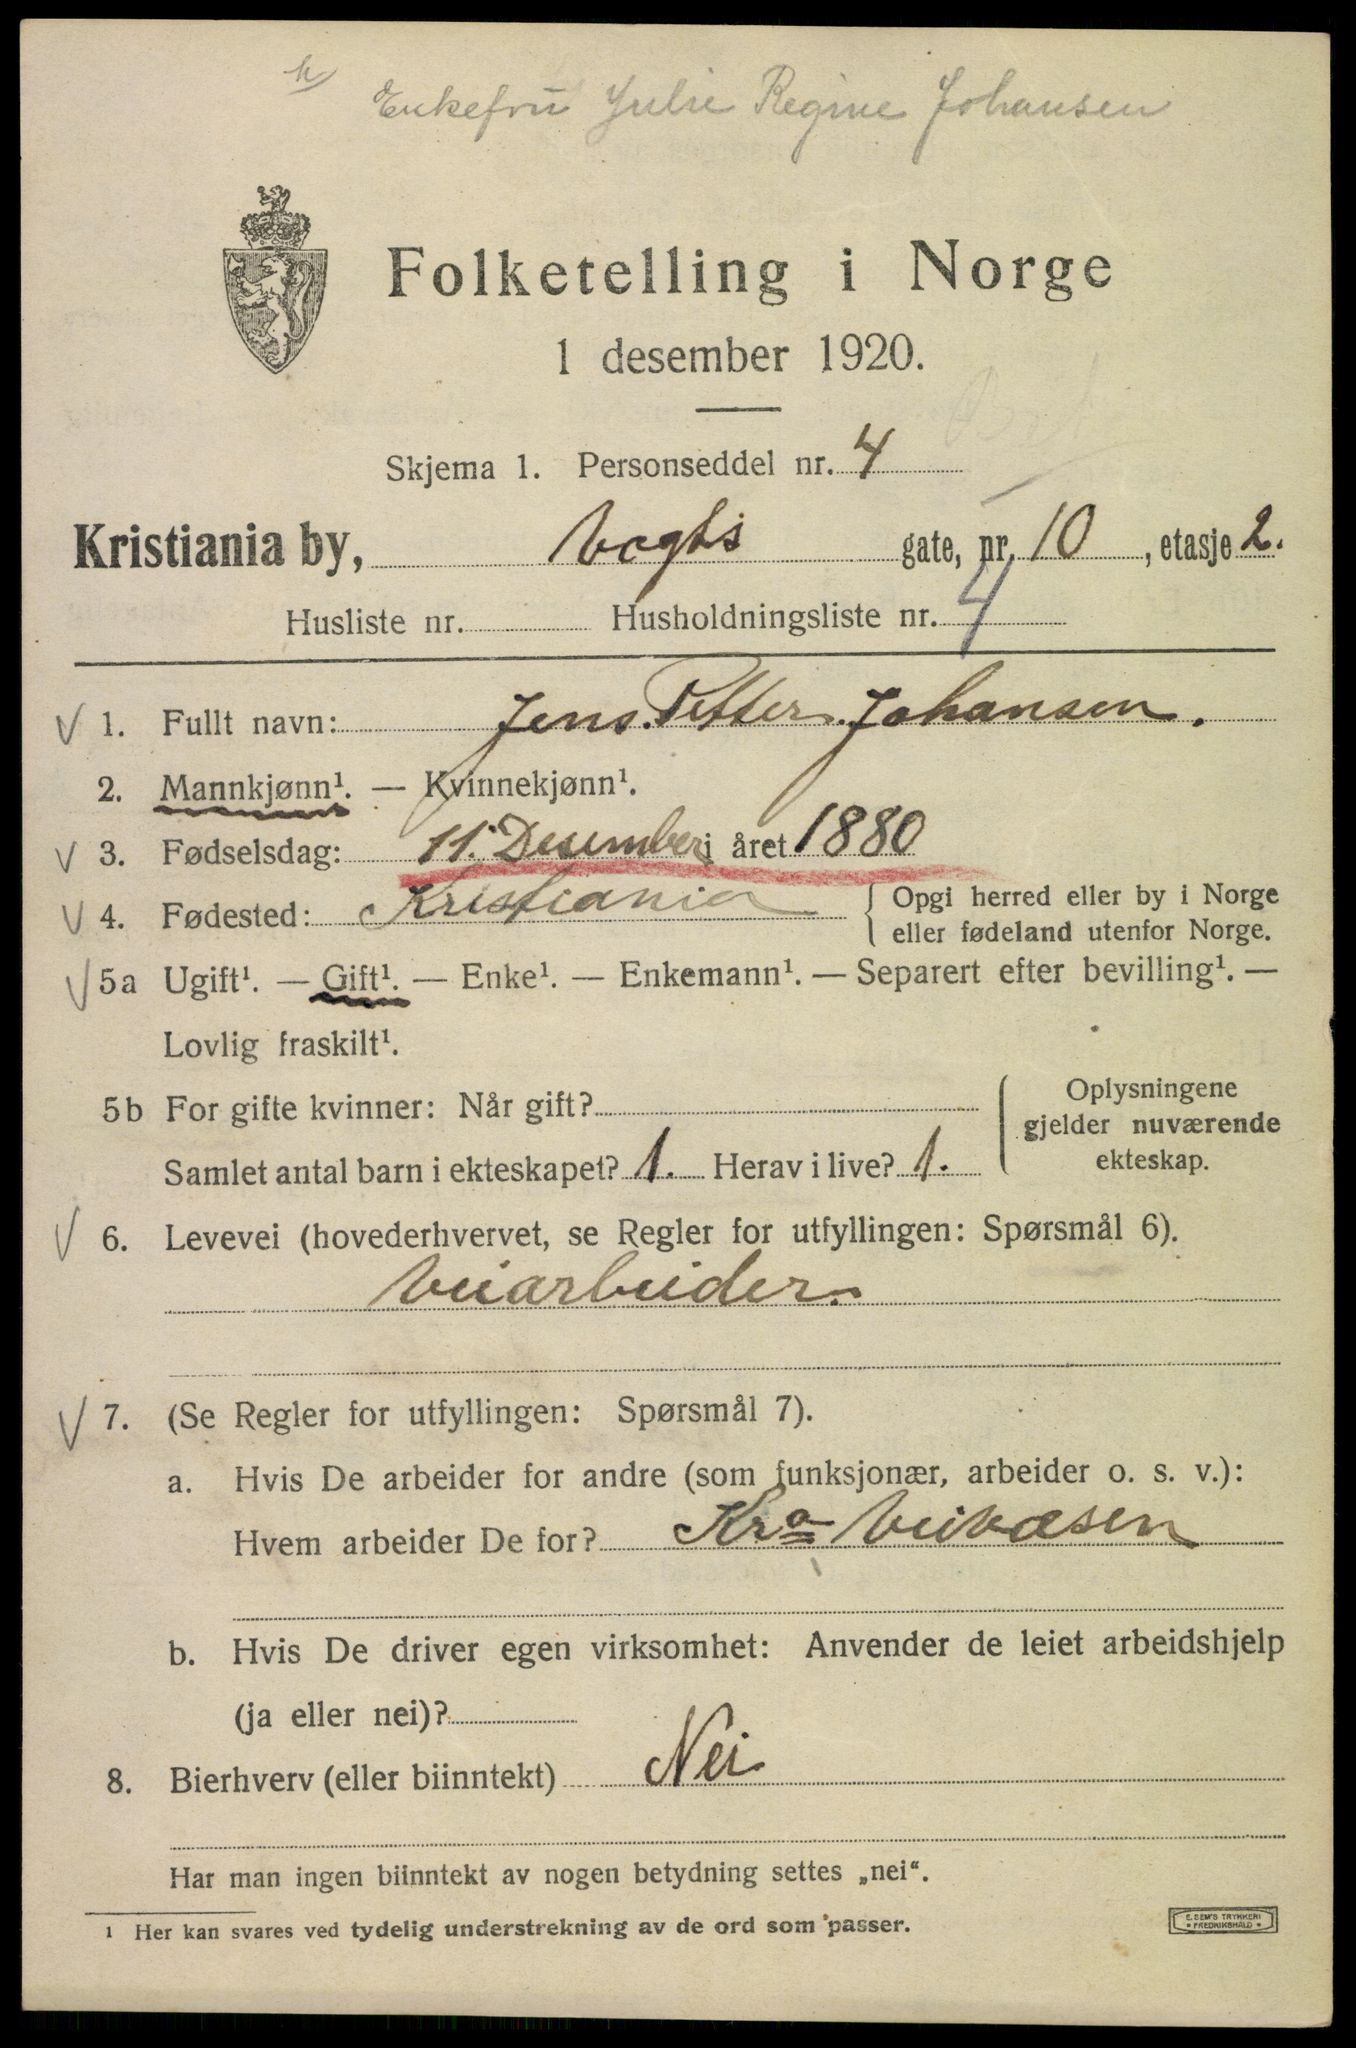 Enkefru Julie Regine Johansen
Folketelling i Norge
1 desember 1920.
Skjema 1. Personseddel nr. 4
Kristiania by, Vogts gate, nr. 10, etasje 2.
Husliste nr. Husholdningsliste nr. 4
1. Fullt navn: Jens. Petter. Johansen.
2. Mannkjønn¹. — Kvinnekjønn¹.
3. Fødselsdag: 11. Desember i året 1880
4. Fødested: Kristiania { Opgi herred eller by i Norge
eller fødeland utenfor Norge.
5a Ugift¹. — Gift¹. — Enke¹. — Enkemann¹. — Separert efter bevilling¹. —
Lovlig fraskilt¹.
5b For gifte kvinner: Når gift?
Samlet antal barn i ekteskapet? 1. Herav i live? 1.
{ Oplysningene
gjelder nuværende
ekteskap.
6. Levevei (hovederhvervet, se Regler for utfyllingen: Spørsmål 6).
Veiarbeider.
7. (Se Regler for utfyllingen: Spørsmål 7).
a. Hvis De arbeider for andre (som funksjonær, arbeider o. s. v.):
Hvem arbeider De for? Kra Veivæsen
b. Hvis De driver egen virksomhet: Anvender de leiet arbeidshjelp
(ja eller nei)?
8. Bierhverv (eller biinntekt) Nei
Har man ingen biinntekt av nogen betydning settes „nei“.
¹ Her kan svares ved tydelig understrekning av de ord som passer.
E. SEM'S TRYKKERI
* FREDRIKSHALD *